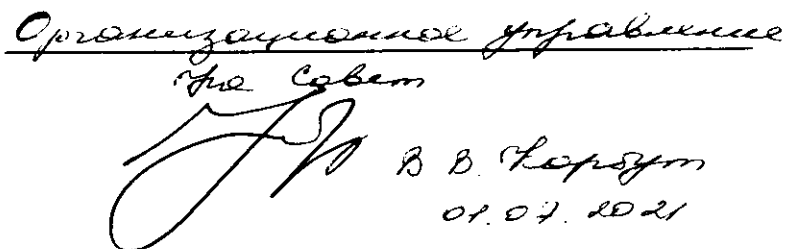 Организационное управление
На Совет
В В. Корбут
01.07.2021